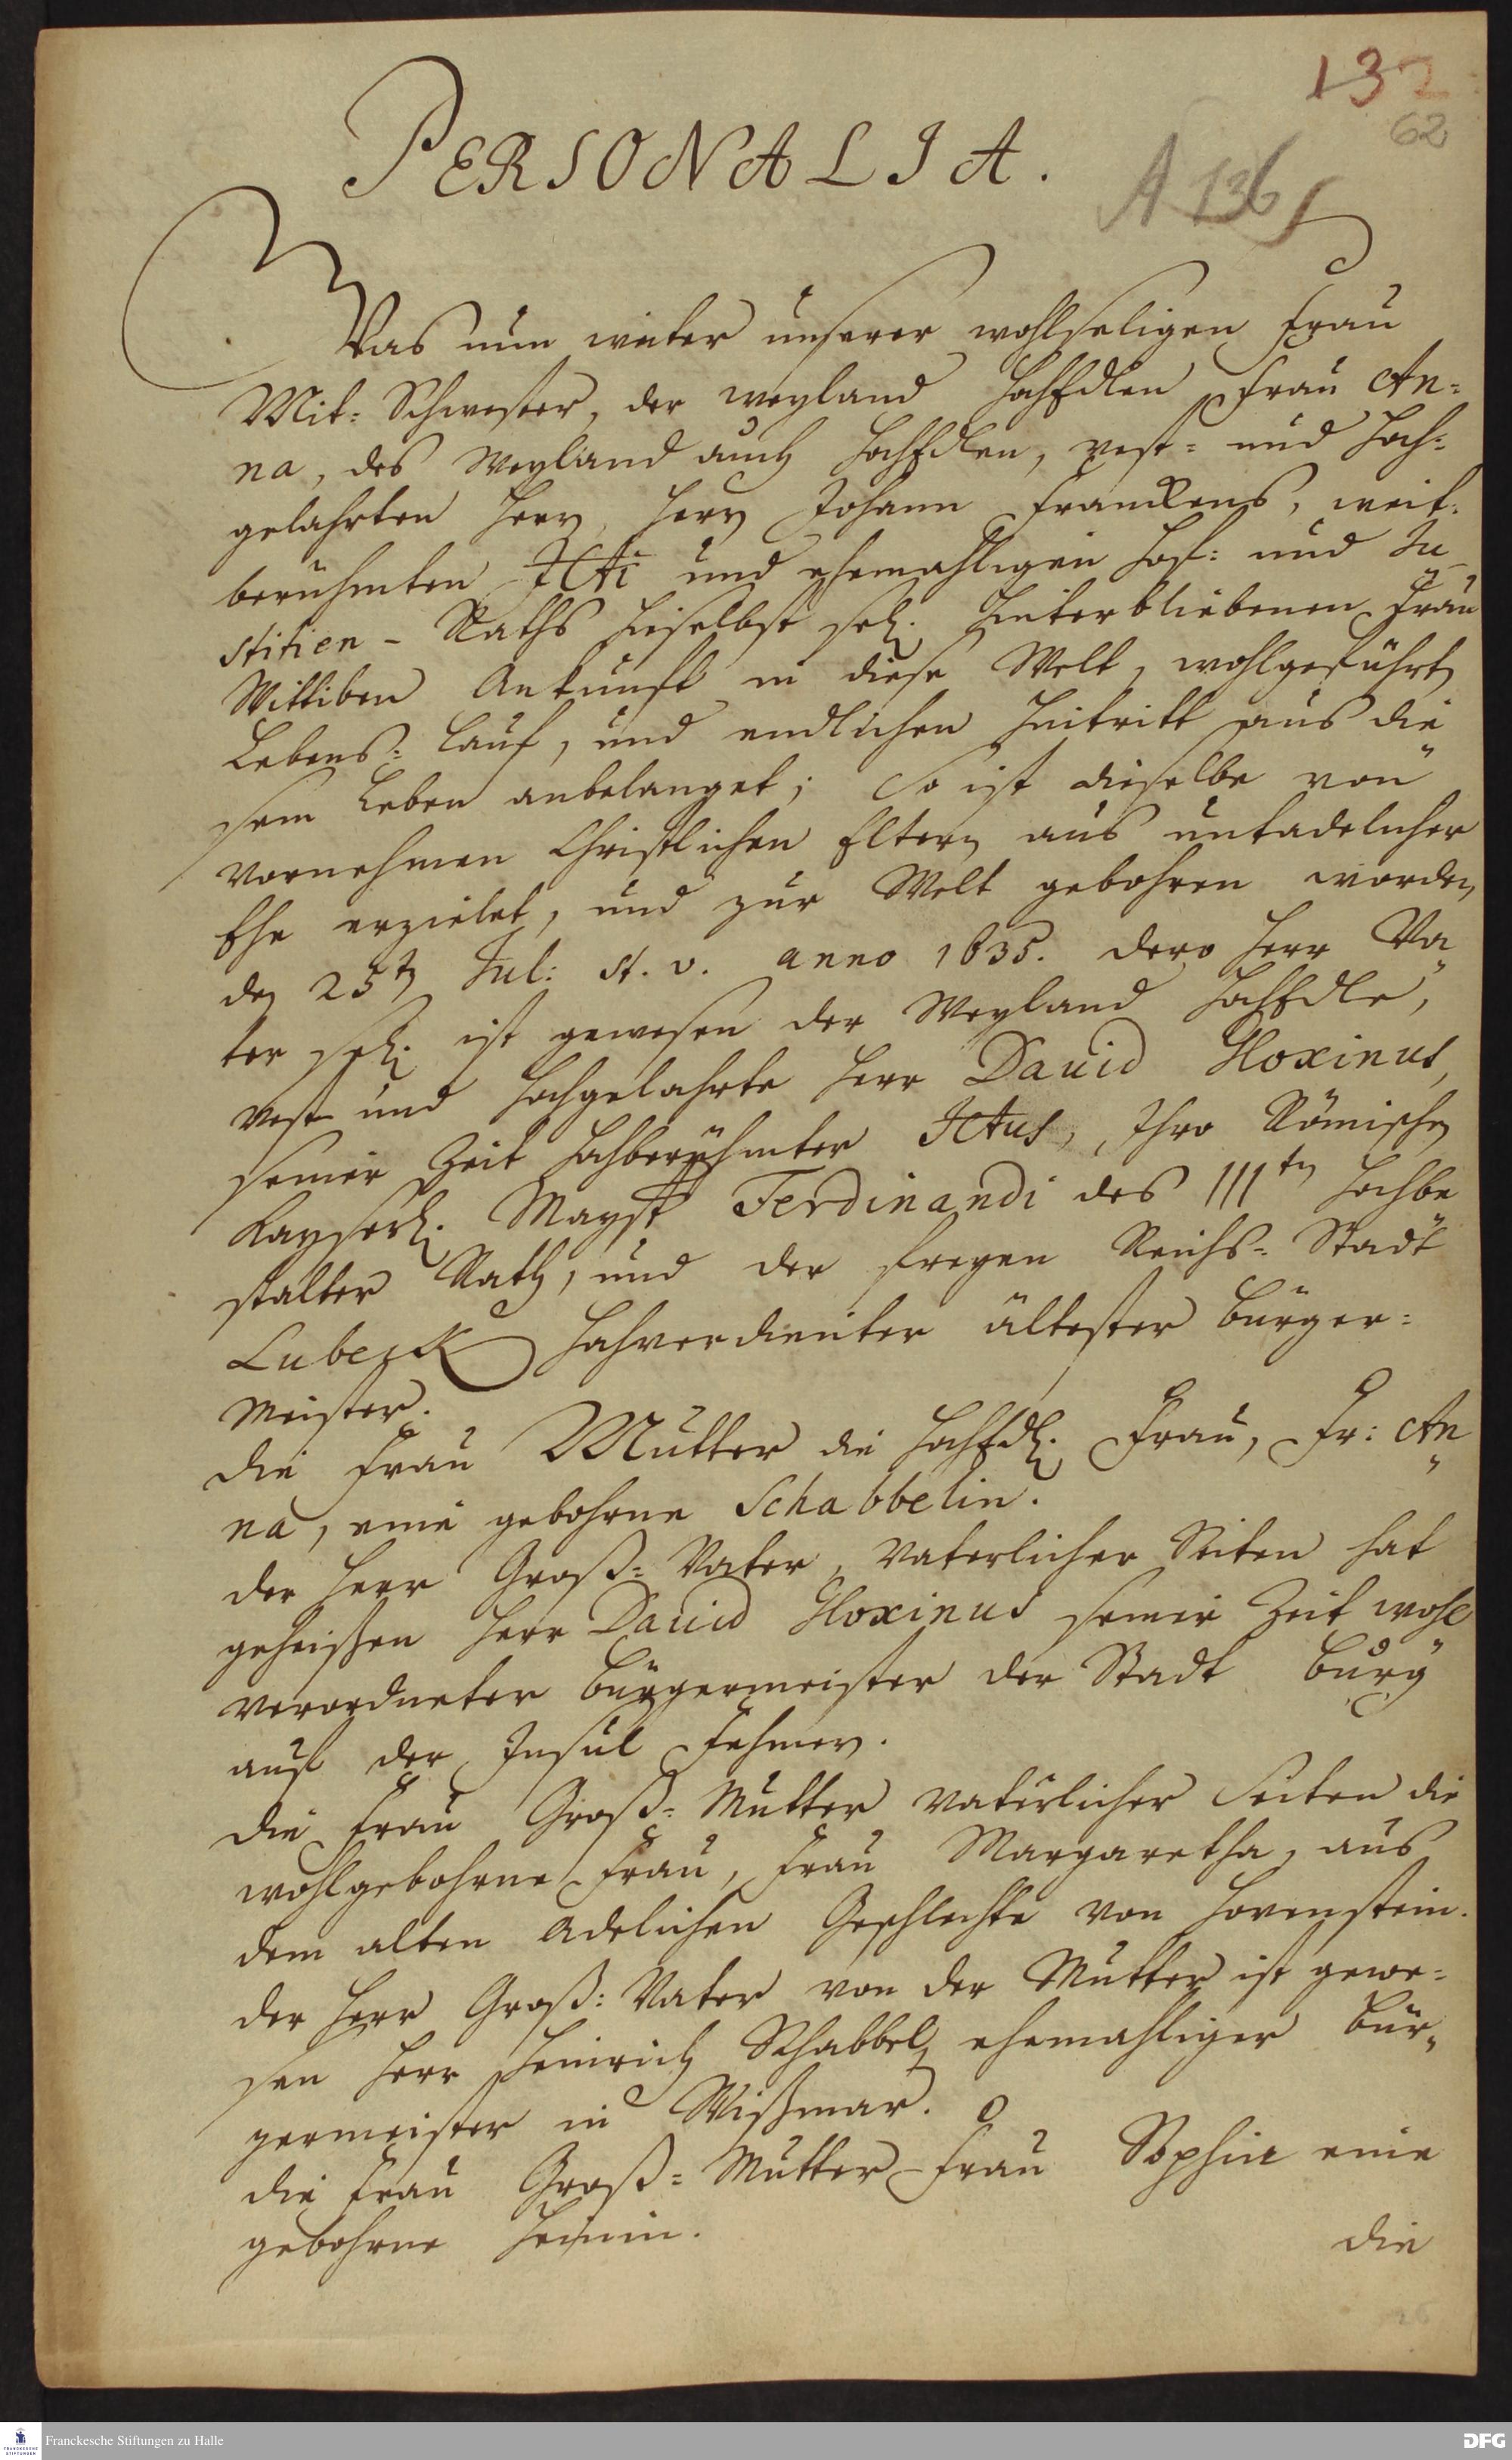 132
62
PERSONALIA.
A 136f
Was nun weiter unserer wohlseligen Frau
Mit= Schwester, der weyland HochEdlen Frau An=
na, des Weyland auch HochEdlen, vest= und Hoch=
gelahrten Herrn, Herrn Johann Franckens, weit=
berühmten JCti und ehemahligen Hof= und Ju=
stitien - Raths hieselbst sel. Hinterbliebenen Frau
Wittiben Ankunfft in diese Welt, wohlgeführten
Lebens= Lauf, und endlichen Hintritt aus die
sem Leben anbelanget; So ist dieselbe von
vornehmen Christlichen Eltern aus untadelicher
Ehe erzielet, und zur Welt gebohren worden,
den 25ten Jul: st. v. anno 1635. dero Herr Va
ter sel. ist gewesen der Weyland HochEdle,
Vest und Hochgelahrte Herr David Gloxinus,
seiner Zeit hochberühmter JCtus, Ihro Römischen
Kayserl. Mayst. Ferdinandi des IIIten Hochbe
stalter Rath, und der freyen Reichs= Stadt
Lubeck Hochverdienter ältester Bürger=
meister.
die Frau Mutter die HochEdl. Frau, Fr: An
na, eine gebohrne Schabbelin.
der Herr Groß= Vater, Vaterlicher Seiten hat
geheissen Herr David Gloxinus seiner Zeit wohl
verordneter Bürgermeister der Stadt Burg
auf der Insul Fehmern.
die Frau Groß= Mutter vaterlicher Seiten die
wohlgebohrne Frau, Frau Margaretha, aus
dem alten Adelichen Geschlechte von Hovenstein.
der Herr Groß= Vater von der Mutter ist gewe=
sen Herr Heinrich Schabbel, ehemahliger Bür=
germeister in Wißmar.
die Frau Groß= Mutter Frau Sophia eine
gebohrne
die
Franckesche Stiftungen zu Halle
DFG